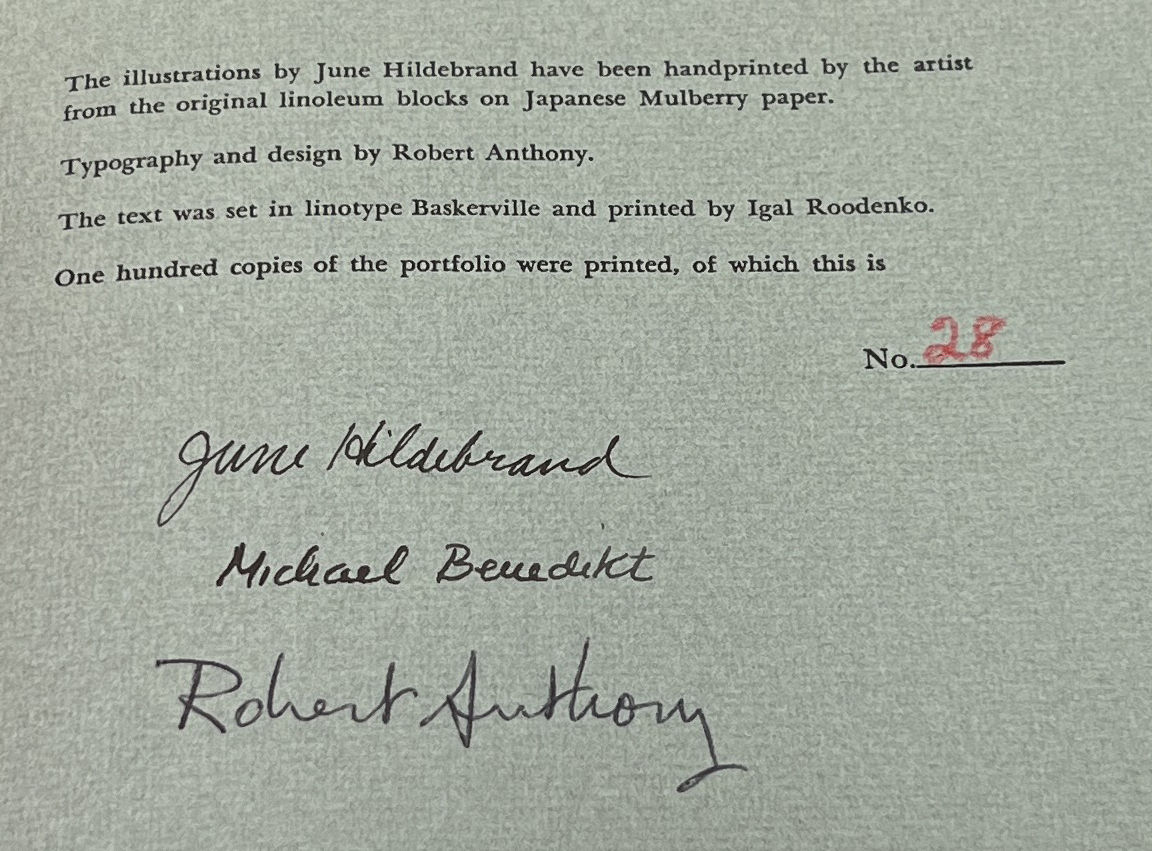 The illustrations by June Hildebrand have been handprinted by the artist
from the original linoleum blocks on Japanese Mulberry paper.
Typography and design by Robert Anthony.
The text was set in linotype Baskerville and printed by Igal Roodenko.
One hundred copies of the portfolio were printed, of which this is
No. 28
June Hildebrand
Michael Benedikt
Robert Anthony